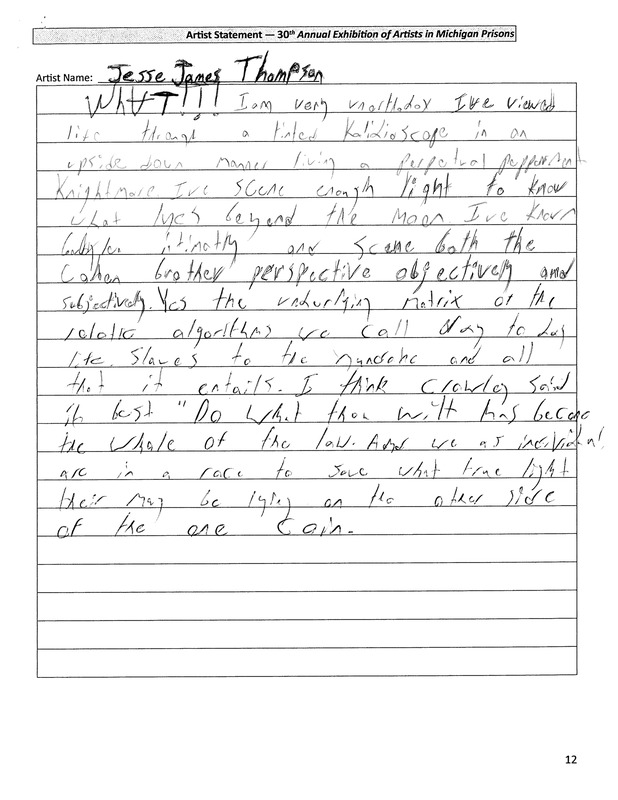 Artist Statement — 30th Annual Exhibition of Artists in Michigan Prisons
Artist Name: Jesse James Thompson
WhAT!!! I am very unorthodox I've viewed
life through a tinted Kalidioscope in an
upside down manner living a perpetual pepperment
Knightmare I've scene enough light to know
what lyes beyond the Moon. I've known
intimatly and scene both the
Cohen brother perspective objectively and
subjectively. Yes the underlying matrix of the
algorithms we call Day to day
life. Slaves to the and all
that it entails. I think Crowley said
it best "Do what thou wilt has become
the whole of the law. And we as individual
are in a race to save what true light
their may be lying on the other side
of the one Coin.
12